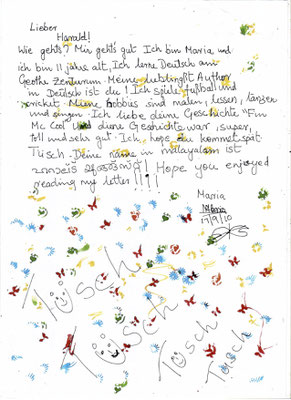 Lieber
Harald!
Wie gehts? Mir gehts gut Ich bin Maria, und
ich bin 11 jahre alt, Ich lerne Deutsch am
Geothe Zenturum. Meine lieblingst Author
in Deutsch ist du! Ich spiele fußball und
cricket. Miene hobbies sind malen, lessen, tanzen
und singen. Ich liebe deine Geschichte "Fin
Mc Cool Und diene Geschichte war, super,
toll und sehr gut. Ich hope du kommet spät.
Tüsch. Deine name in malayalam ist
Hope you enjoyed
reading my letter!!!!
Maria
Maria
17/9/10
Tüsch
Tüsch
Tüsch
Tüsch